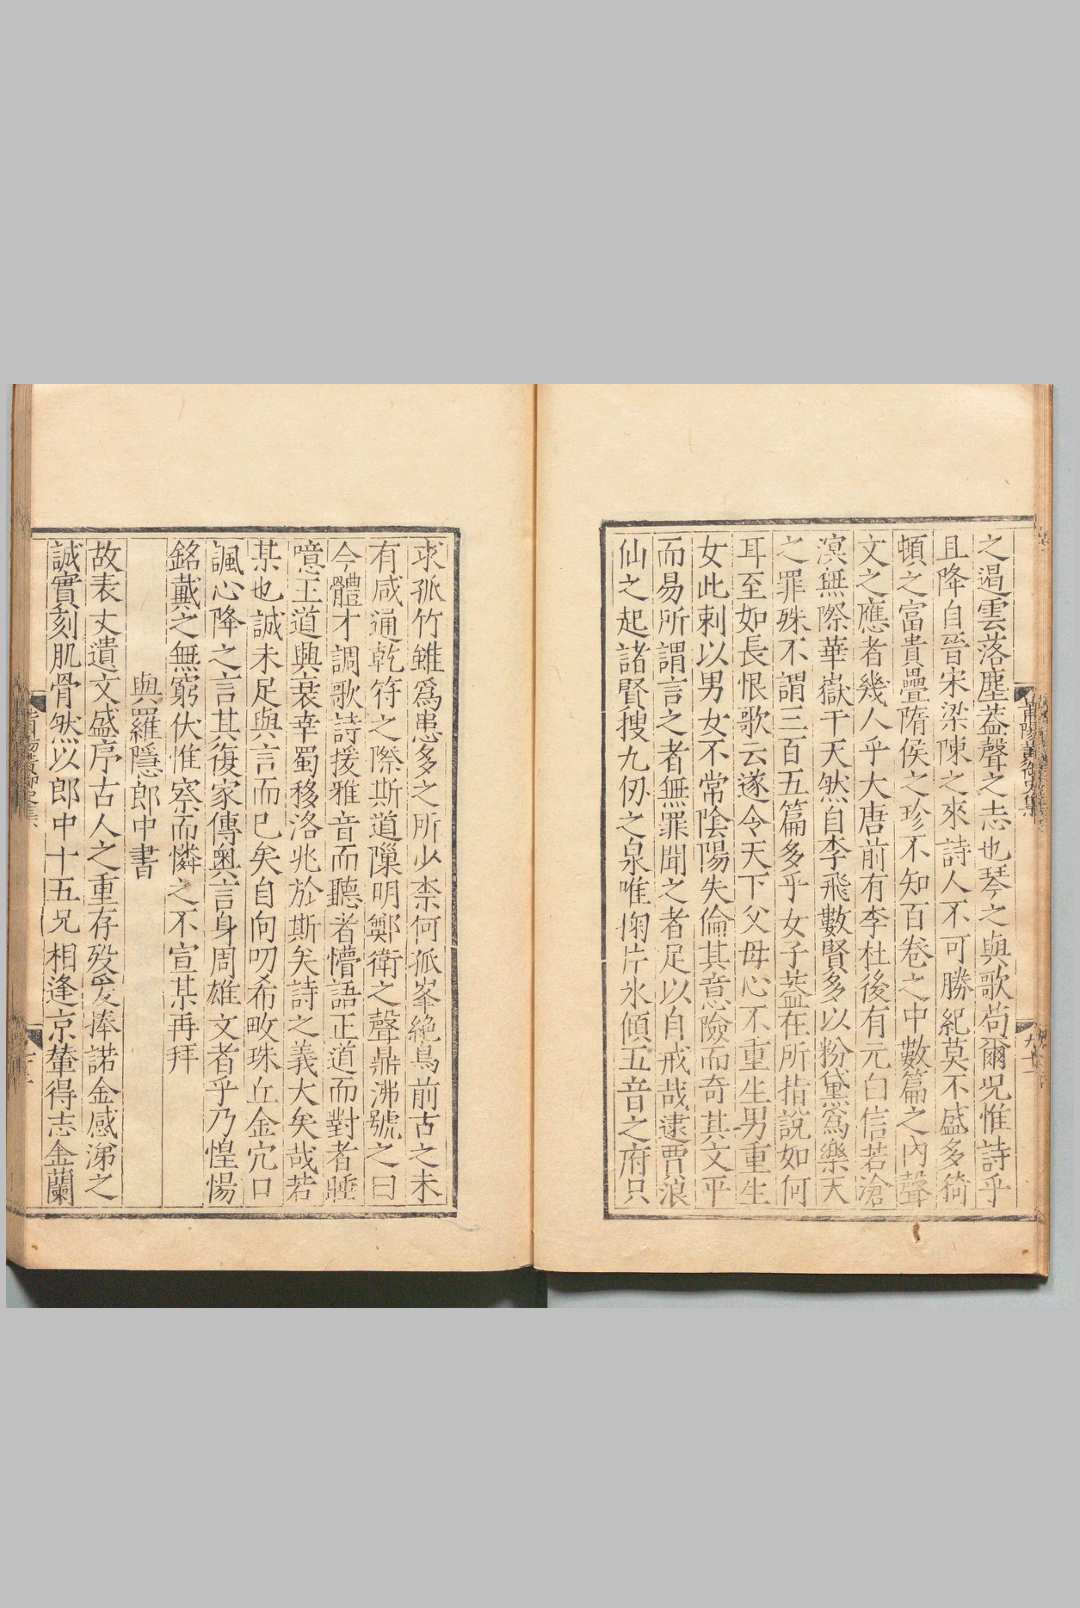 之遏雲落塵蓋聲之志也琴之與歌苟爾况惟詩乎
且降自晉宋梁陳之來詩人不可勝紀莫不盛多猗
頓之富貴疊隋侯之珍不知百卷之中數篇之內聲
文之應者幾人乎大唐前有李杜後有元白信若滄
溟無際華嶽干天然自李飛數賢多以粉黛爲樂天
之罪殊不謂三百五篇多乎女子蓋在所指說如何
耳至如長恨歌云遂令天下父母心不重生男重生
女此刺以男女不常陰陽失倫其意險而奇其文平
而易所謂言之者無罪聞之者足以自戒哉逮賈浪
仙之起諸賢搜九仞之泉唯掬片氷傾五音之府只
求孤竹雖爲患多之所少柰何孤峯絶鳥前古之未
有咸通乾符之際斯道隟明鄭衛之聲鼎沸號之曰
今體才調歌詩援雅音而聽者懵語正道而對者睡
噫王道興衰幸蜀移洛兆於斯矣詩之義大矣哉若
某也誠未足與言而已矣自向叨希畋珠丘金穴口
諷心降之言其復家傳輿言身周雄文者乎乃惶惕
銘戴之無窮伏惟察而憐之不宣某再拜
與羅隱郎中書
故表丈遺文盛序古人之重存歿爰捧諾金感涕之
誠實刻肌骨然以郎中十五兄相逢京輦得志金蘭
莆陽黃御史集